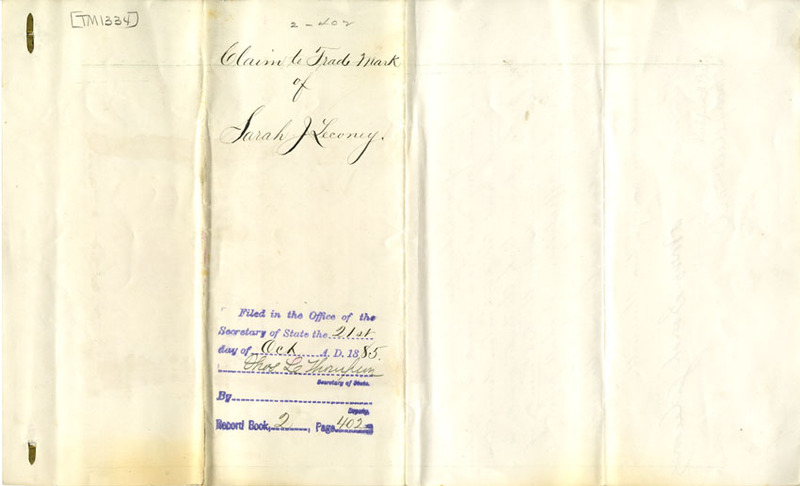 [TM1334]
2-402
Claim to Trade Mark
of
Sarah J Leconey.
Filed in the Office of the
Secretary of State the 21st
day of Oct A. D. 1885.
Chas L Thompson
Secretary of State.
By
Deputy.
Record Book, 2, Page 402